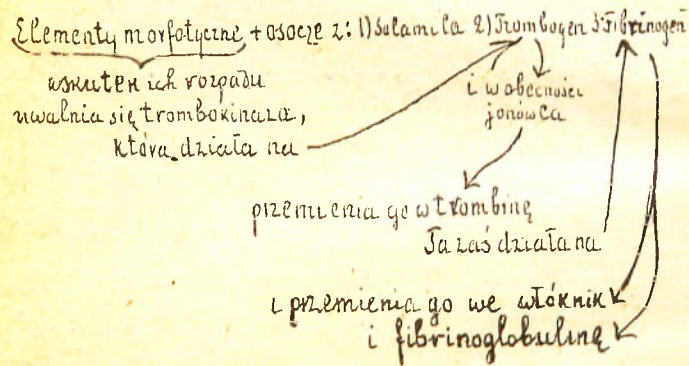 Elementy morfotyczne + osocze z: 1) Solami Ca 2) Trombogen 3) Fibrinogen
wskutek ich rozpadu
uwalnia się trombokinaza,
która działa na
i w obecności
jonów Ca
przemienia go w trombinę
Ta zaś działa na
i przemienia go we włóknik
i fibrinoglobulinę